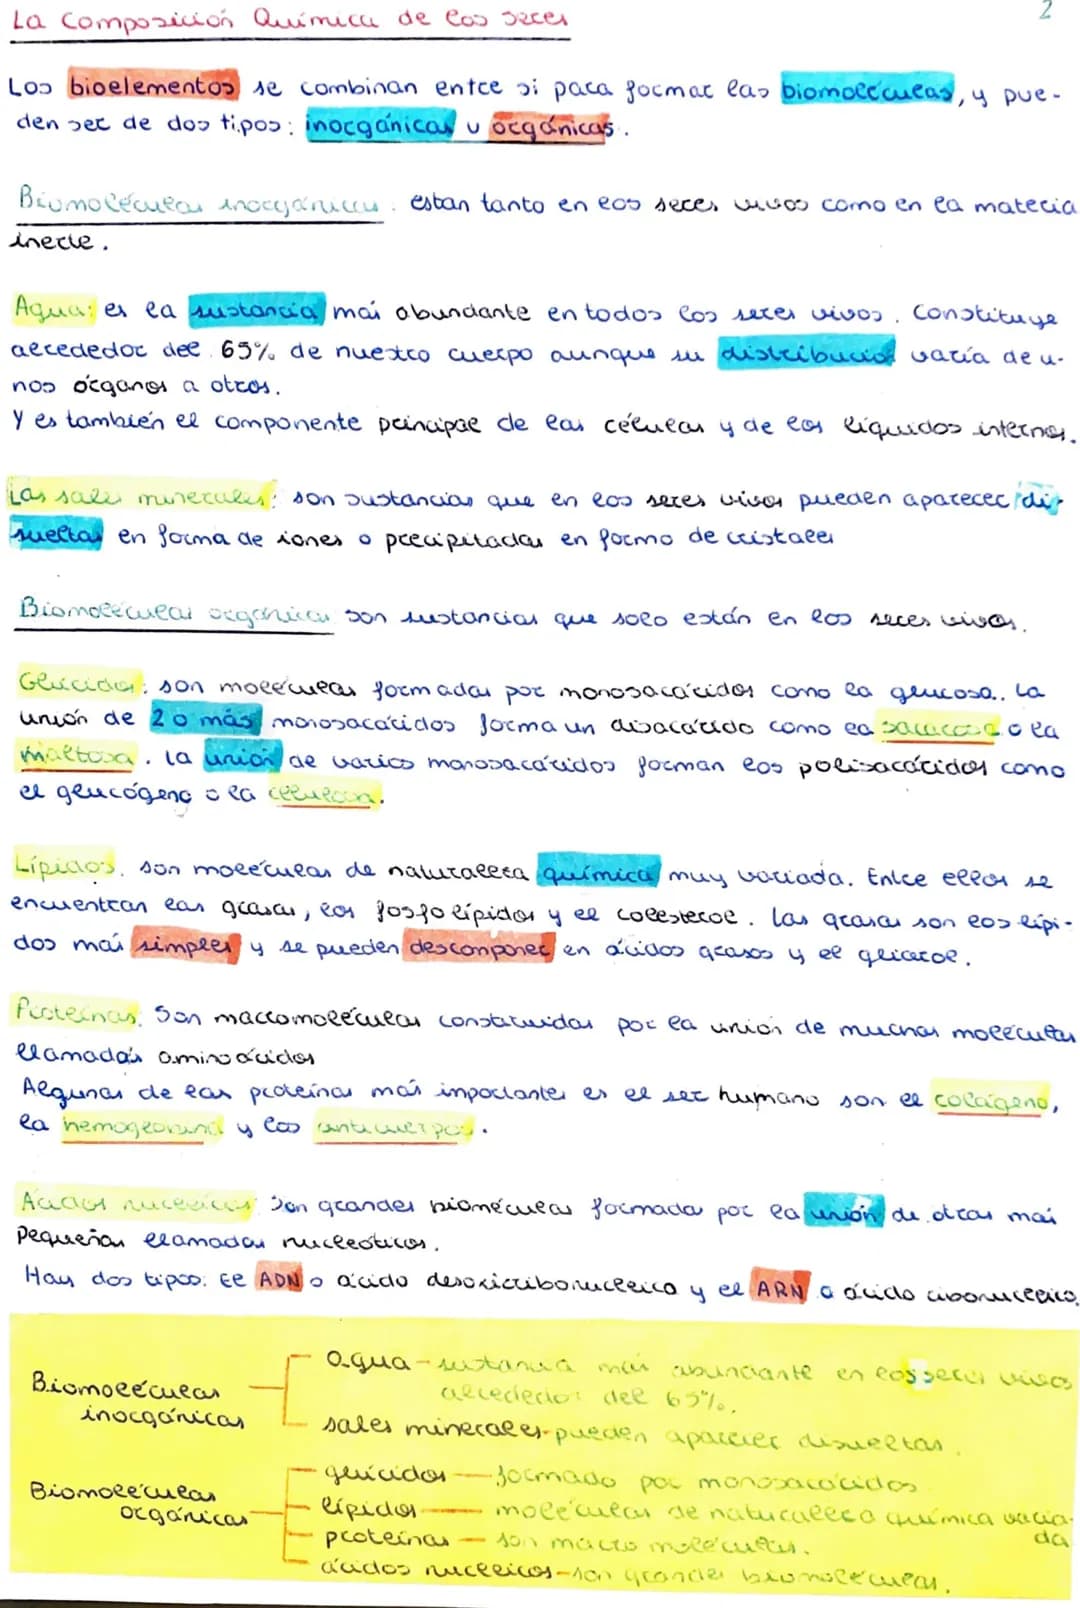 La Composición Química de los seres
2
Los bioelementos se combinan entre si para formar las biomoléculas, y pue-
den ser de dos tipos: inorgánicas u orgánicas.
Biomoléculas inorgánicas: estan tanto en los seres vivos como en la materia
inerte.
Agua: es la sustancia más abundante en todos los seres vivos. Constituye
alrededor del 65% de nuestro cuerpo aunque su distribución varía de u-
nos órganos a otros.
Y es también el componente principal de las células y de los líquidos internos.
Las sales minerales: son sustancias que en los seres vivos pueden aparecer di-
sueltas en forma de iones o precipitadas en formo de cristales
Biomoléculas orgánicas son sustancias que solo están en los seres vivos.
Glúcidos: son moléculas formadas por monosacáridos como la glucosa. La
unión de 2 o más monosacáridos forma un disacárido como la sacarosa o la
maltosa. La unión de varios monosacáridos forman los polisacáridos como
el glucógeno o la celulosa.
Lípidos. son moléculas de naturaleza química muy variada. Entre ellos se
encuentran las grasas, los fosfolípidos y el colesterol. Las grasas son los lípi-
dos más simples y se pueden desconponer en ácidos grasos y el glicerol.
Proteínas. Son macromoléculas constituidas por la unión de muchas moléculas
llamadas aminoácidos
Algunas de las proteínas más inportantes es el ser humano son el colágeno,
la hemoglobina y los anticuerpos.
Ácidos nucleicos: Son grandes bioméculas formada por la unión de otras más
pequeñas llamadas nucleóticos.
Hay dos tipos: El ADN o ácido desoxirribonucleico y el ARN o ácido ribonucleico.
Biomoléculas inorgánicas
agua - sustancia más abundante en los seres vivos
alrededor del 65%.
sales minerales - pueden aparecer disueltas.
Biomoléculas orgánicas
glúcidos — formado por monosacáridos
lípidos — moléculas de naturaleza química varia-
da
proteínas — son macro moléculas.
ácidos nucleicos - son grandes biomoléculas.